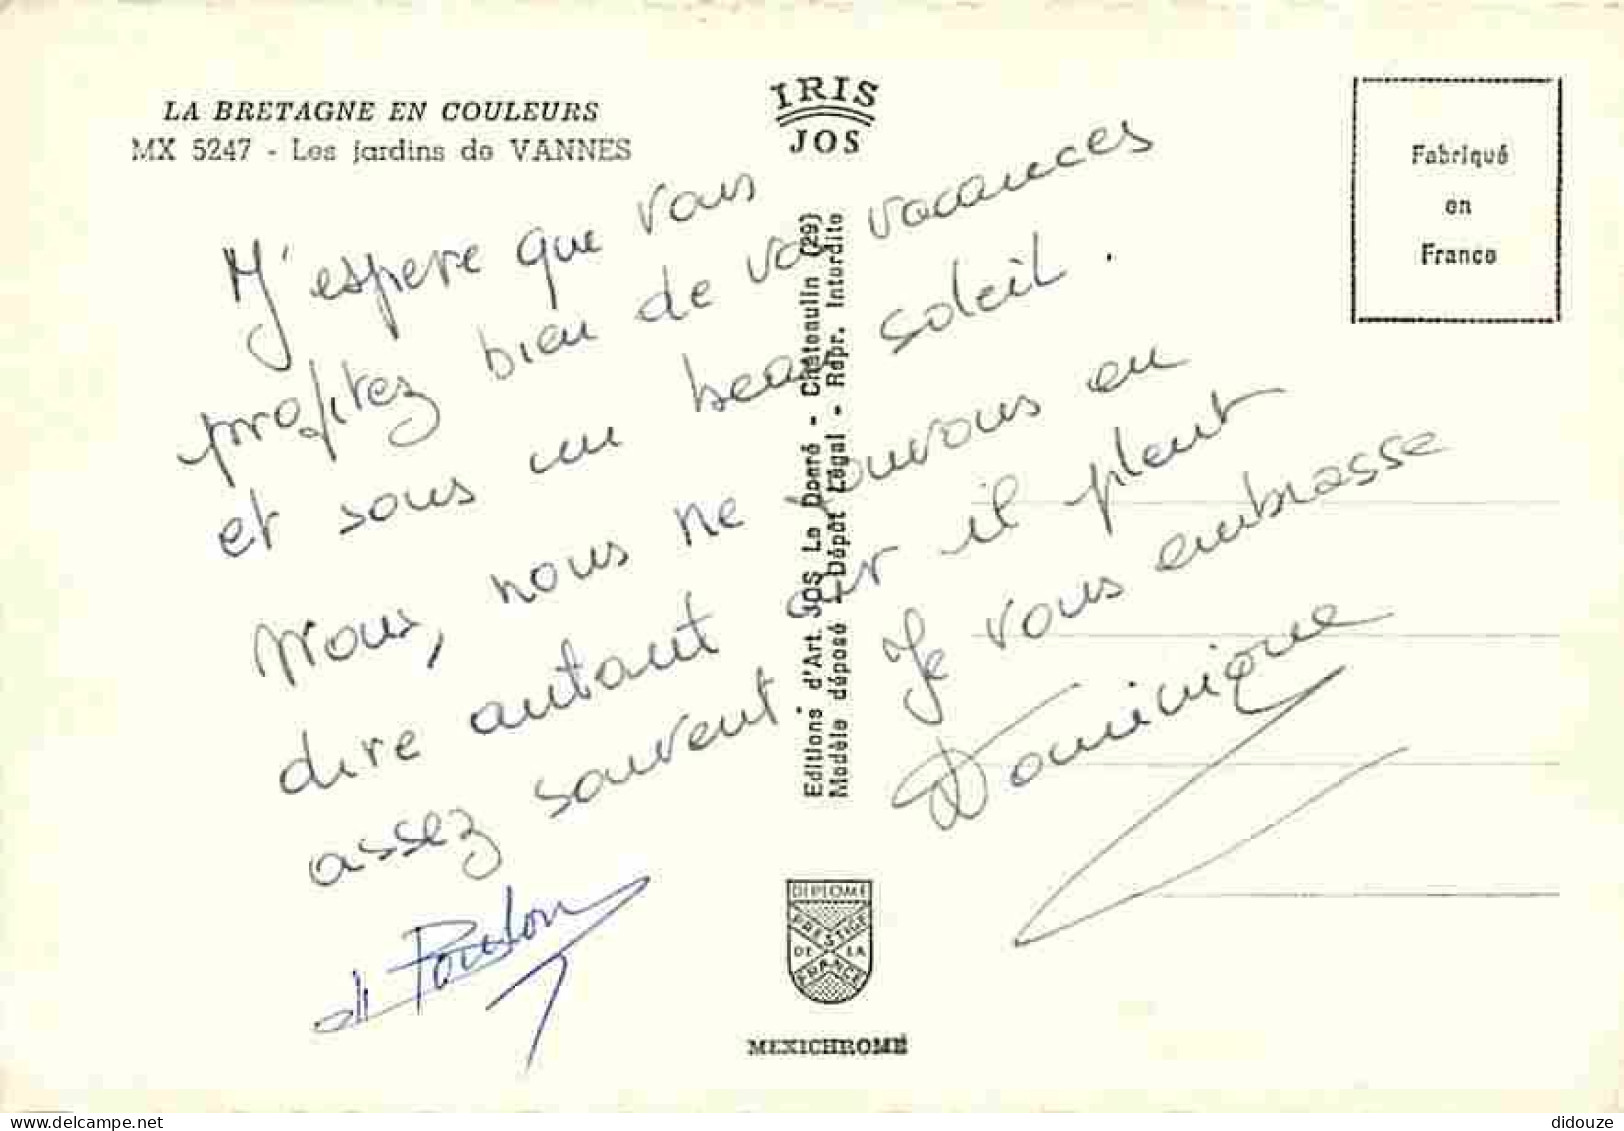 LA BRETAGNE EN COULEURS
MX 5247 - Les jardins de VANNES
IRIS
JOS
Fabriqué
en
France
J'espere que vous
profitez bien de vos vacances
et sous un beau soleil.
Nous, nous ne pouvons en
dire autant car il pleut
assez souvent
Je vous embrasse
Dominique
Editions d'Art. JOS Le Doaré - Châteaulin (29)
Modèle déposé - Dépôt Légal - Repr. Interdite
DIPLOME
PRESTIGE
DE LA
FRANCE
MEXICHROME
didouze